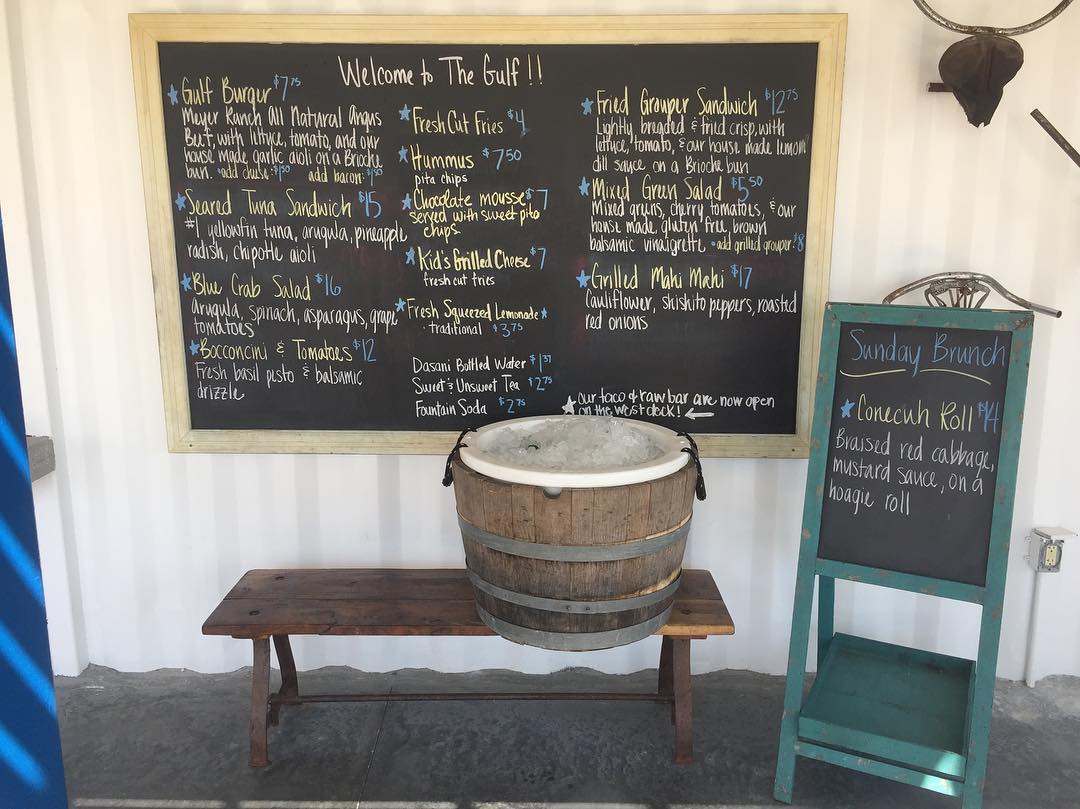 Welcome to The Gulf!!
Gulf Burger $7.75
Meyer Ranch All Natural Angus
Beef, with lettuce, tomato, and our
house made garlic aioli on a Brioche
bun. •add cheese: $1.50 add bacon: $1.50
Seared Tuna Sandwich $15
#1 yellowfin tuna, arugula, pineapple
radish, chipotle aioli
Blue Crab Salad $16
Arugula, spinach, asparagus, grape
tomatoes
Bocconcini & Tomatoes $12
Fresh basil pesto & balsamic
drizzle
Fresh Cut Fries $4
Hummus $7.50
pita chips
Chocolate mousse $7
served with sweet pita
chips
Kid's Grilled Cheese $7
fresh cut fries
Fresh Squeezed Lemonade
· traditional $3.75
Dasani Bottled Water $1.37
Sweet & Unsweet Tea $2.75
Fountain Soda $2.75
Fried Grouper Sandwich $12.75
Lightly breaded & fried crisp, with
lettuce, tomato, & our house made lemon
dill sauce on a Brioche bun
Mixed Green Salad $5.50
Mixed greens, cherry tomatoes, & our
house made, gluten free, brown
balsamic vinaigrette •add grilled grouper: $8
Grilled Mahi Mahi $17
Cauliflower, shishito peppers, roasted
red onions
our taco & raw bar are now open
on the west deck! ←
Sunday Brunch
Conecuh Roll $14
Braised red cabbage,
mustard sauce, on a
hoagie roll